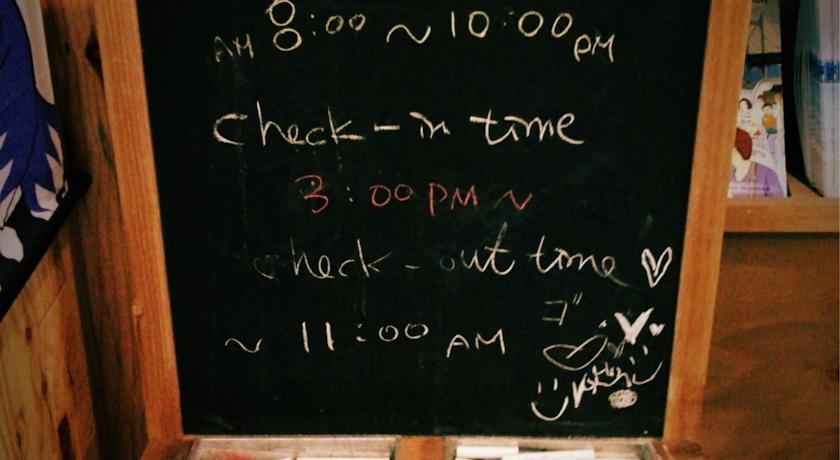 AM 8:00 ~ 10:00 PM
check-in time
3:00 PM ~
check-out time ♡
~ 11:00 AM